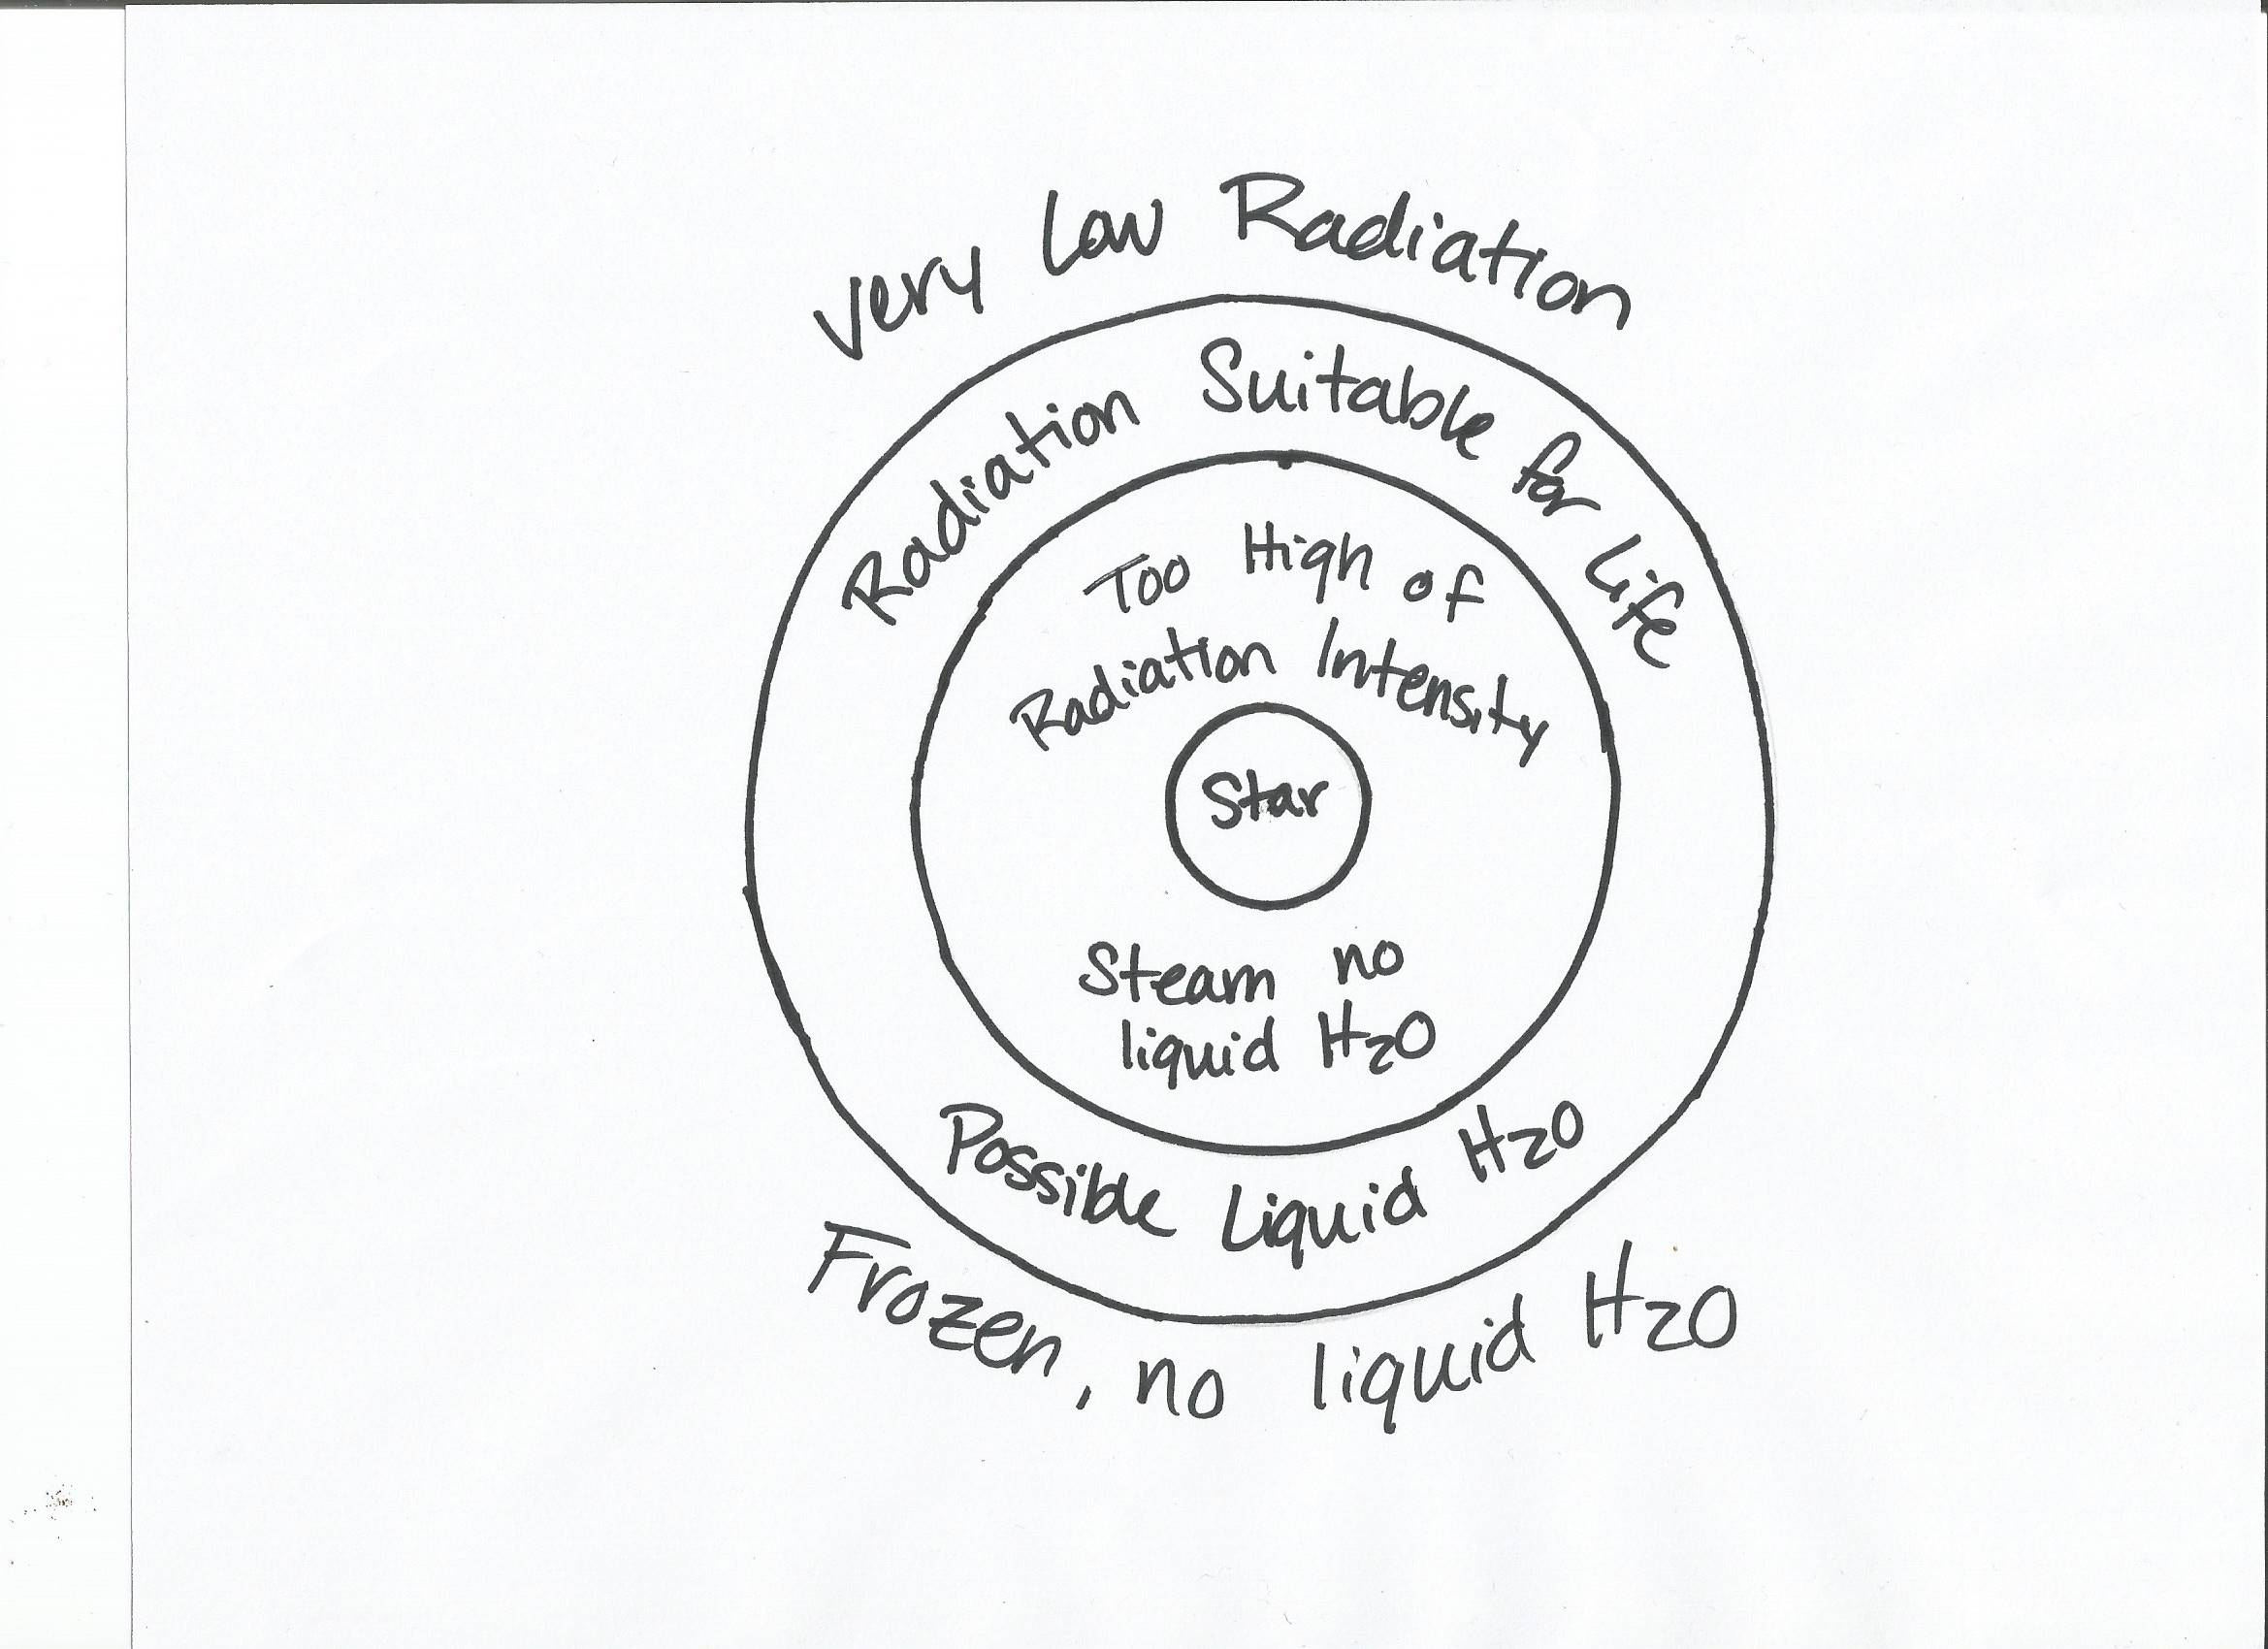 Very Low Radiation
Radiation Suitable for Life
Too High of
Radiation Intensity
Star
Steam no
liquid H2O
Possible Liquid H2O
Frozen, no liquid H2O